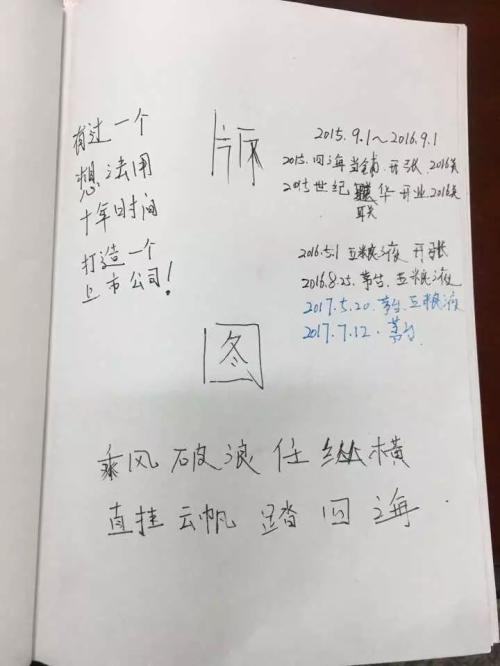 有过一个
想法用
十年时间
打造一个
上市公司!
版
图
2015.9.1~2016.9.1
2015.四海当铺.开张.2016关
2015世纪华开业.2016关
联
2016.5.1 五粮液 开张
2016.8.25.茅台.五粮液
2017.5.20.茅台.五粮液
2017.7.12.茅台
乘风破浪任纵横
直挂云帆踏四海.